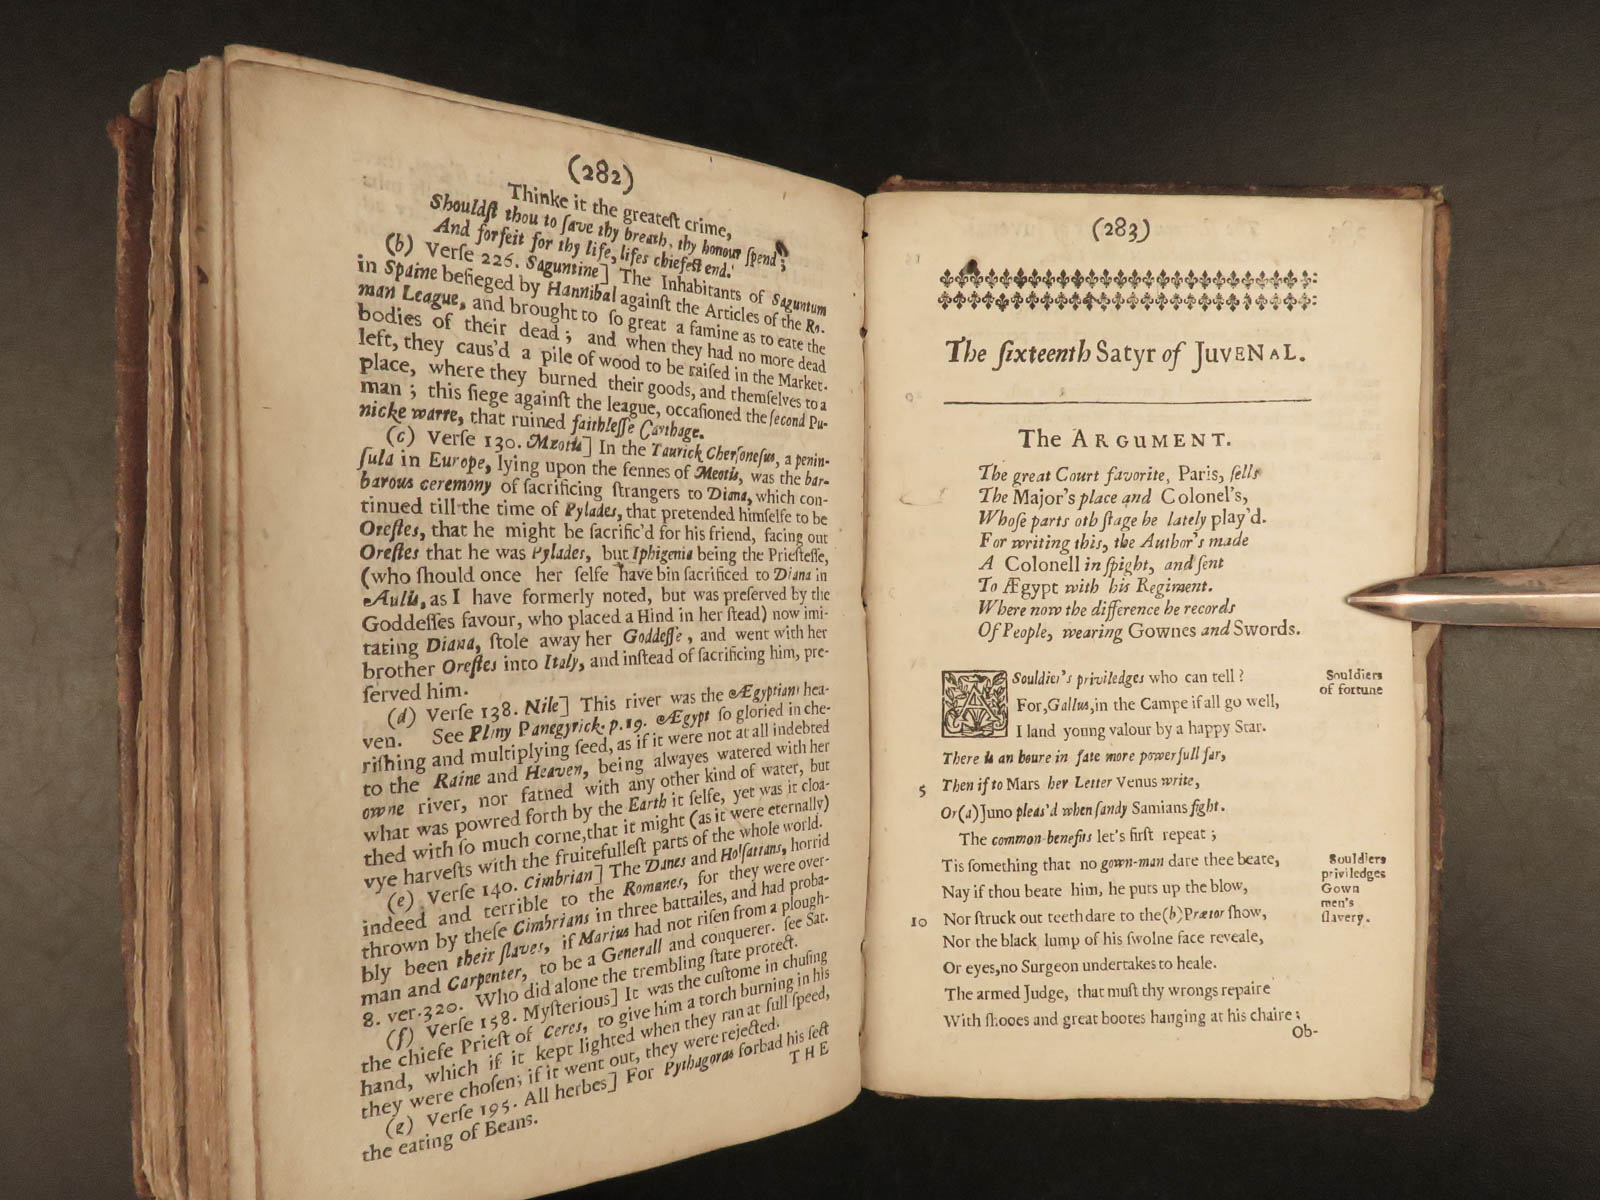 (282)
Thinke it the greateſt crime,
Shouldſt thou to ſave thy breath, thy honour ſpend;
And forfeit for thy life, lifes chiefeſt end.
(b) Verſe 226. Saguntine] The Inhabitants of Saguntum
in Spaine beſieged by Hannibal againſt the Articles of the Ro-
man League, and brought to ſo great a famine as to eate the
bodies of their dead; and when they had no more dead
left, they caus'd a pile of wood to be raiſed in the Market-
place, where they burned their goods, and themſelves to a
man; this ſiege againſt the league, occaſioned the ſecond Pu-
nicke warre, that ruined faithleſſe Carthage.
(c) Verſe 130. Mæotis] In the Taurick Cherſoneſus, a penin-
ſula in Europe, lying upon the fennes of Meotis, was the bar-
barous ceremony of ſacrificing ſtrangers to Diana, which con-
tinued till the time of Pylades, that pretended himſelfe to be
Oreſtes, that he might be ſacrific'd for his friend, facing out
Oreſtes that he was Pylades, but Iphigenia being the Prieſteſſe,
(who ſhould once her ſelfe have bin ſacrificed to Diana in
Aulis, as I have formerly noted, but was preſerved by the
Goddeſſes favour, who placed a Hind in her ſtead) now imi-
tating Diana, ſtole away her Goddeſſe, and went with her
brother Oreſtes into Italy, and inſtead of ſacrificing him, pre-
ſerved him.
(d) Verſe 138. Nile] This river was the Ægyptians hea-
ven. See Pliny Panegyrick. p.19. Ægypt ſo gloried in che-
riſhing and multiplying ſeed, as if it were not at all indebted
to the Raine and Heaven, being alwayes watered with her
owne river, nor fatned with any other kind of water, but
what was powred forth by the Earth it ſelfe, yet was it cloa-
thed with ſo much corne, that it might (as it were eternally)
vye harveſts with the fruitefulleſt parts of the whole world.
(e) Verſe 140. Cimbrian] The Danes and Holſatians, horrid
indeed and terrible to the Romanes, for they were over-
thrown by theſe Cimbrians in three battailes, and had proba-
bly been their ſlaves, if Marius had not riſen from a plough-
man and Carpenter, to be a Generall and conquerer. ſee Sat.
8. ver.320. Who did alone the trembling ſtate protect.
(f) Verſe 158. Myſterious] It was the cuſtome in chuſing
the chiefe Prieſt of Ceres, to give him a torch burning in his
hand, which if it kept lighted when they ran at full ſpeed,
they were choſen; if it went out, they were rejected.
(g) Verſe 195. All herbes] For Pythagoras forbad his ſect
the eating of Beans.
THE
(283)
The ſixteenth Satyr of JUVENAL.
The ARGUMENT.
The great Court favorite, Paris, ſells
The Major's place and Colonel's,
Whoſe parts oth ſtage he lately play'd.
For writing this, the Author's made
A Colonell in ſpight, and ſent
To Ægypt with his Regiment.
Where now the difference he records
Of People, wearing Gownes and Swords.
A Souldier's priviledges who can tell?
For, Gallus, in the Campe if all go well,
I land young valour by a happy Star.
There is an houre in fate more powerfull far,
5 Then if to Mars her Letter Venus write,
Or (a) Juno pleas'd when ſandy Samians fight.
The common-benefits let's firſt repeat;
Tis ſomething that no gown-man dare thee beate,
Nay if thou beate him, he puts up the blow,
10 Nor ſtruck out teeth dare to the (b) Prætor ſhow,
Nor the black lump of his ſwolne face reveale,
Or eyes, no Surgeon undertakes to heale.
The armed Judge, that muſt thy wrongs repaire
With ſhooes and great bootes hanging at his chaire;
Ob-
Souldiers
of fortune
Souldiers
priviledges
Gown
men's
ſlavery.